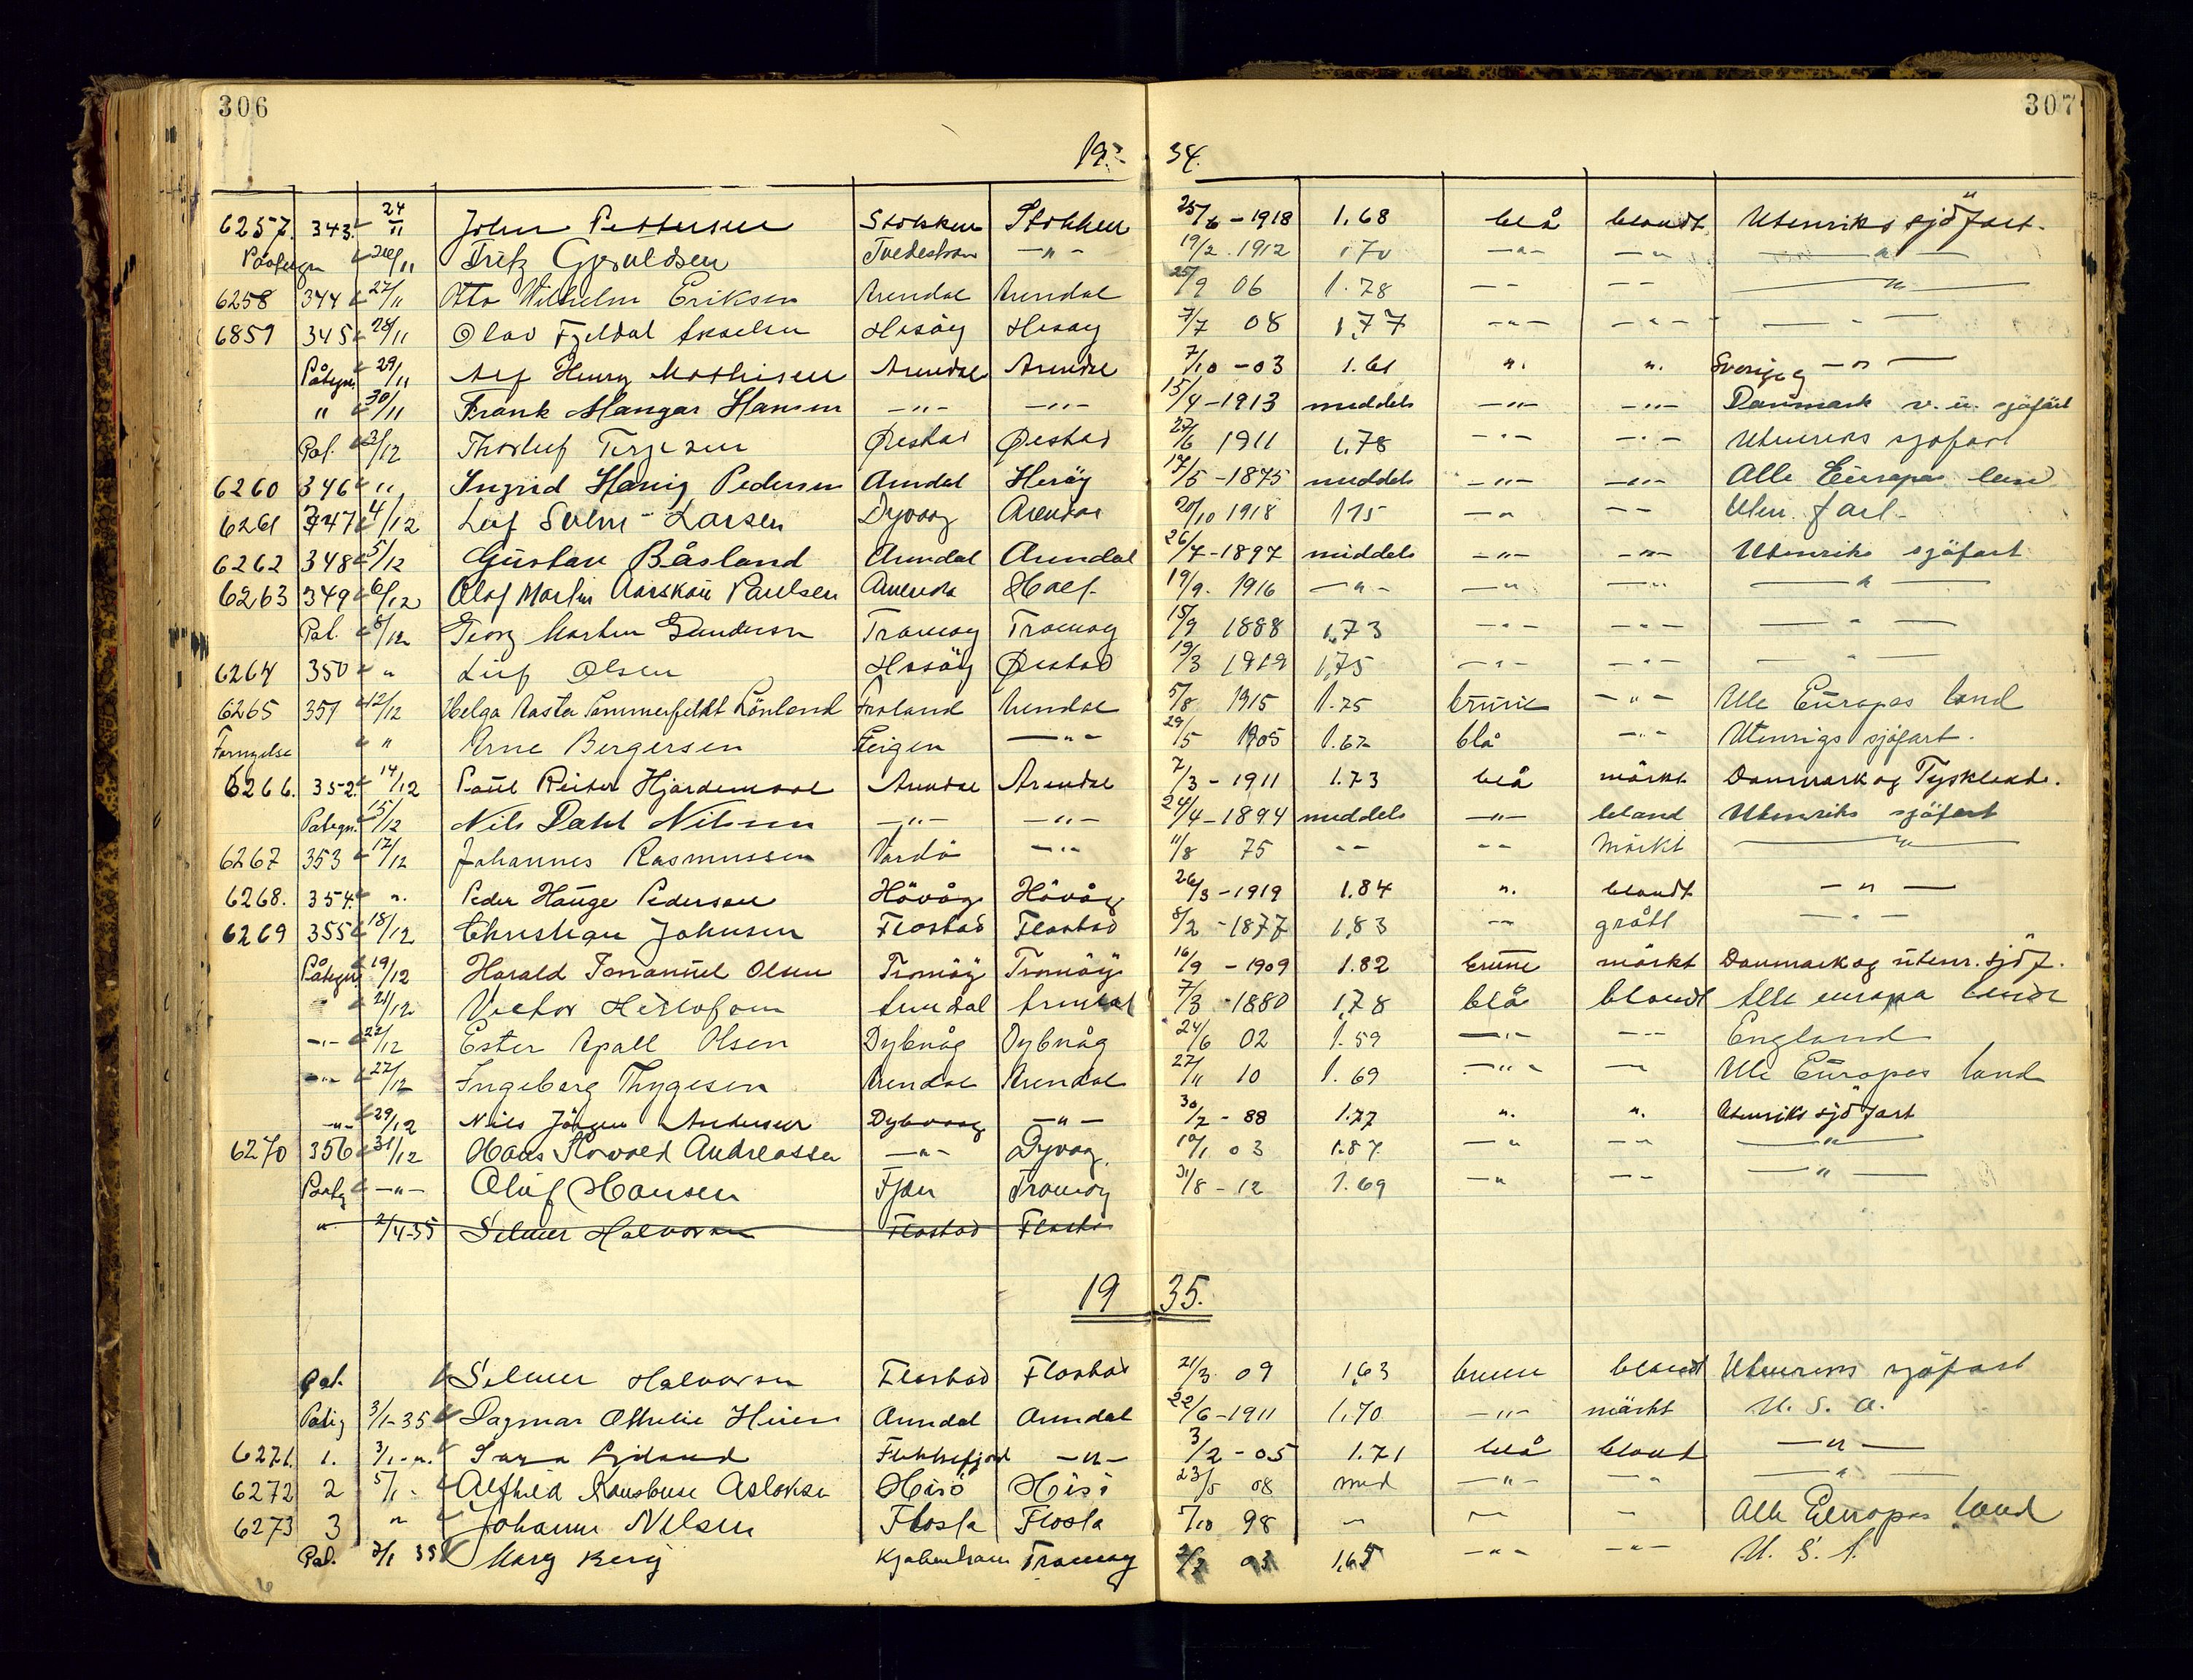 306 307
19 34.
6257. 343. 24/11 John Pettersen Stokken Stokken 25/6 - 1918 1.68 blå blondt Utenriks sjöfart.
Paategn 26/11 Fritz Gjeruldsen Tvedestran - " - 19/2. 1912 170 - " - - " - " -
6258 344 27/11 Otto Wilhelm Eriksen Arendal Arendal 25/9 06 1.78 - - - - "
6859 345 28/11 Olav Fjeldal Akselsen Hisöy Hisøy 7/7 08 1,77 - " - - " - - " -
Påtegn. 29/11 Alf Henry Mathisen Arendal Arendal 7/10 - 03 1.61 ". ". Sverige og - " -
" 30/11 Frank Mangar Hansen - " - - " - 15/4 - 1913 middels - " - - " - Danmark v. u. sjøfart
Pat. 3/12 Thorleif Terjesen Øiestad Øiestad 27/6 1911 1,78 - " - - " - Utenriks sjøfart
6260 346 " Ingrid Hamig Pedersen Arendal Hisöy 17/5 - 1875 middels - " - - " - Alle Europas land
6261 347 4/12 Leif Solm - Larsen Dyvaag Arendal 20/10 1918 175 - " - - Uten. fart -
6262 348 5/12 Gustav Båsland Arendal Arendal 26/7 - 1897 middels - " - - " - Utenriks sjøfart
6263 349 6/12 Olaf Martin Aarskau Paulsen Arendal Holt. 19/9. 1916 - " - - " - " - " -
Pat. 8/12 Georg Marten Gundersen Tromøy Tromøy 15/9 1888 1,73 - " - - " - - " -
6264 350 " Leif Olsen Hisöy Øiestad 19/3 1919 1,75 - " - - " - - " -
6265 351 12/12 Helga Aasta Sommerfeldt Lönland Froland Arendal 5/8 1915 1.75 brune - " - Alle Europas land
Fornyelse " Arne Bergersen Feigen - " - 29/5 1905 1.62 blå - " - Utenrigs sjøfart.
6266. 352. 14/12 Paul Reiter Hjardemaal Arendal Arendal 7/3 - 1911 1.73 blå mörkt Danmark og Tyskland.
Pategn. 15/12 Nils Dahl Nilsen - " - - " - 24/4 - 1894 middels - " - blond Utenriks sjöfart
6267 353 17/12 Johannes Rasmussen Vardö - " - 11/8 75 - - - - Mörkt "
6268. 354. ". Peder Hauge Pedersen Hövåg Hövåg 26/3 - 1919 1.84 ". blondt - " -
6269 355 18/12 Christian Johnsen Flostad Flostad 8/2 - 1877 1,83 - - grått - " -
Påtegn 19/12 Harald Immanuel Olsen Tromöy Tromöy 16/9 - 1909 1.82 brune mörkt Danmark og utenr. sjöf.
" 21/12 Victor Herlofson Arendal Arendal 7/3 - 1880 1,78 blå blondt Alle europa lande
- " - 22/12 Ester Apall Olsen Dybvåg Dybvåg 24/6 02 1.59 - " - - - England
- " - 27/12 Ingeborg Thygesen Arendal Arendal 27/11 10 1.69 - " - - Alle Europas land
- " - 29/12 Nils Jörgen Andersen Dybvaag - " - 30/7 - 88 1.77 ". ". Utenriks sjöfart
6270 356 31/12 Hans Torvald Andreassen - " - Dyvag. 10/1 03 1.87. - " - " "
Paateg - " - Oluf Hansen Fjære Tromøy 31/8 - 12 1.69 - " - - - " -
" 2/4-35 Selmer Halvorsen Flostad Flosta
19 35.
Pat. Selmer Halvorsen Flostad Flostad 21/3 09 1,63 brune blondt Utenriks sjøfart
Pateg 3/1-35 Dagmar Othelie Heien Arendal Arendal 22/6 - 1911 1.70 - " - mörkt U. S. A.
6271. 1. 3/1 - ". Flekkefjord - " - 3/2 - 05 1.71 blå blond - " -
6272 2 5/1 - Alfhild Aslaksen Hisö Hisö 23/5 08 mid - " - - " - "
6273 3 " Johanne Nilsen Flosta Flosta 5/10 98 - - - Alle Europas land
Pat. 7/1 35 Mary Berg Kjøbenhavn Tromøy 1,65 - " - - " - U. S. A.